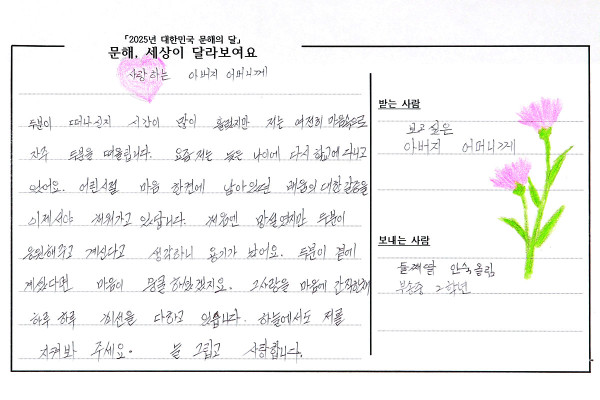 「2025년 대한민국 문해의 달」
문해, 세상이 달라보여요
사랑하는 아버지 어머니께
두분이 떠나신지 시간이 많이 흘렀지만 저는 여전히 마음속으로
자주 두분을 떠올립니다. 요즘 저는 늦은 나이에 다시 학교에 다니고
있어요. 어린시절 마음 한켠에 남아있던 배움의 대한 갈증을
이제서야 채워가고 있습니다. 처음엔 망설였지만 두분이
응원해주고 계신다고 생각하니 용기가 났어요. 두분이 곁에
계신다면 마음이 뭉클하셨겠지요. 그사랑을 마음에 간직한채
하루 하루 최선을 다하고 있습니다. 하늘에서도 저를
지켜봐 주세요. 늘 그립고 사랑합니다.
받는 사람
보고싶은
아버지 어머니께
보내는 사람
둘째딸 안숙올림
부송중 2학년